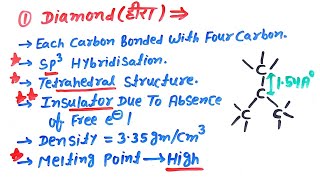 ① Diamond (हीरा) ⇒
→ Each Carbon Bonded With Four Carbon.
→ Sp³ Hybridisation.
→ Tetrahedral Structure.
→ Insulator Due To Absence
of Free e⊖!
→ Density = 3.35 gm/cm³
→ Melting Point → High
C
C
C C
1.54A°